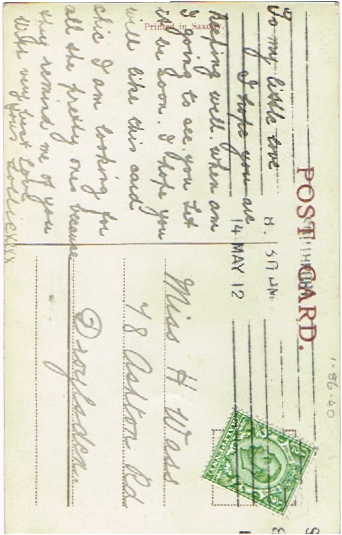 POST CARD.
Printed in Saxony.
14 MAY 12
1-86-20
To my little love
I hope you are
keeping well. when am
I going to see you Let
it be soon. I hope you
will like this card
this I am looking for
all the pretty ones because
they remind me of you
With very best Love
from
Miss H Wass
78 Ashton Rd
Droylsden